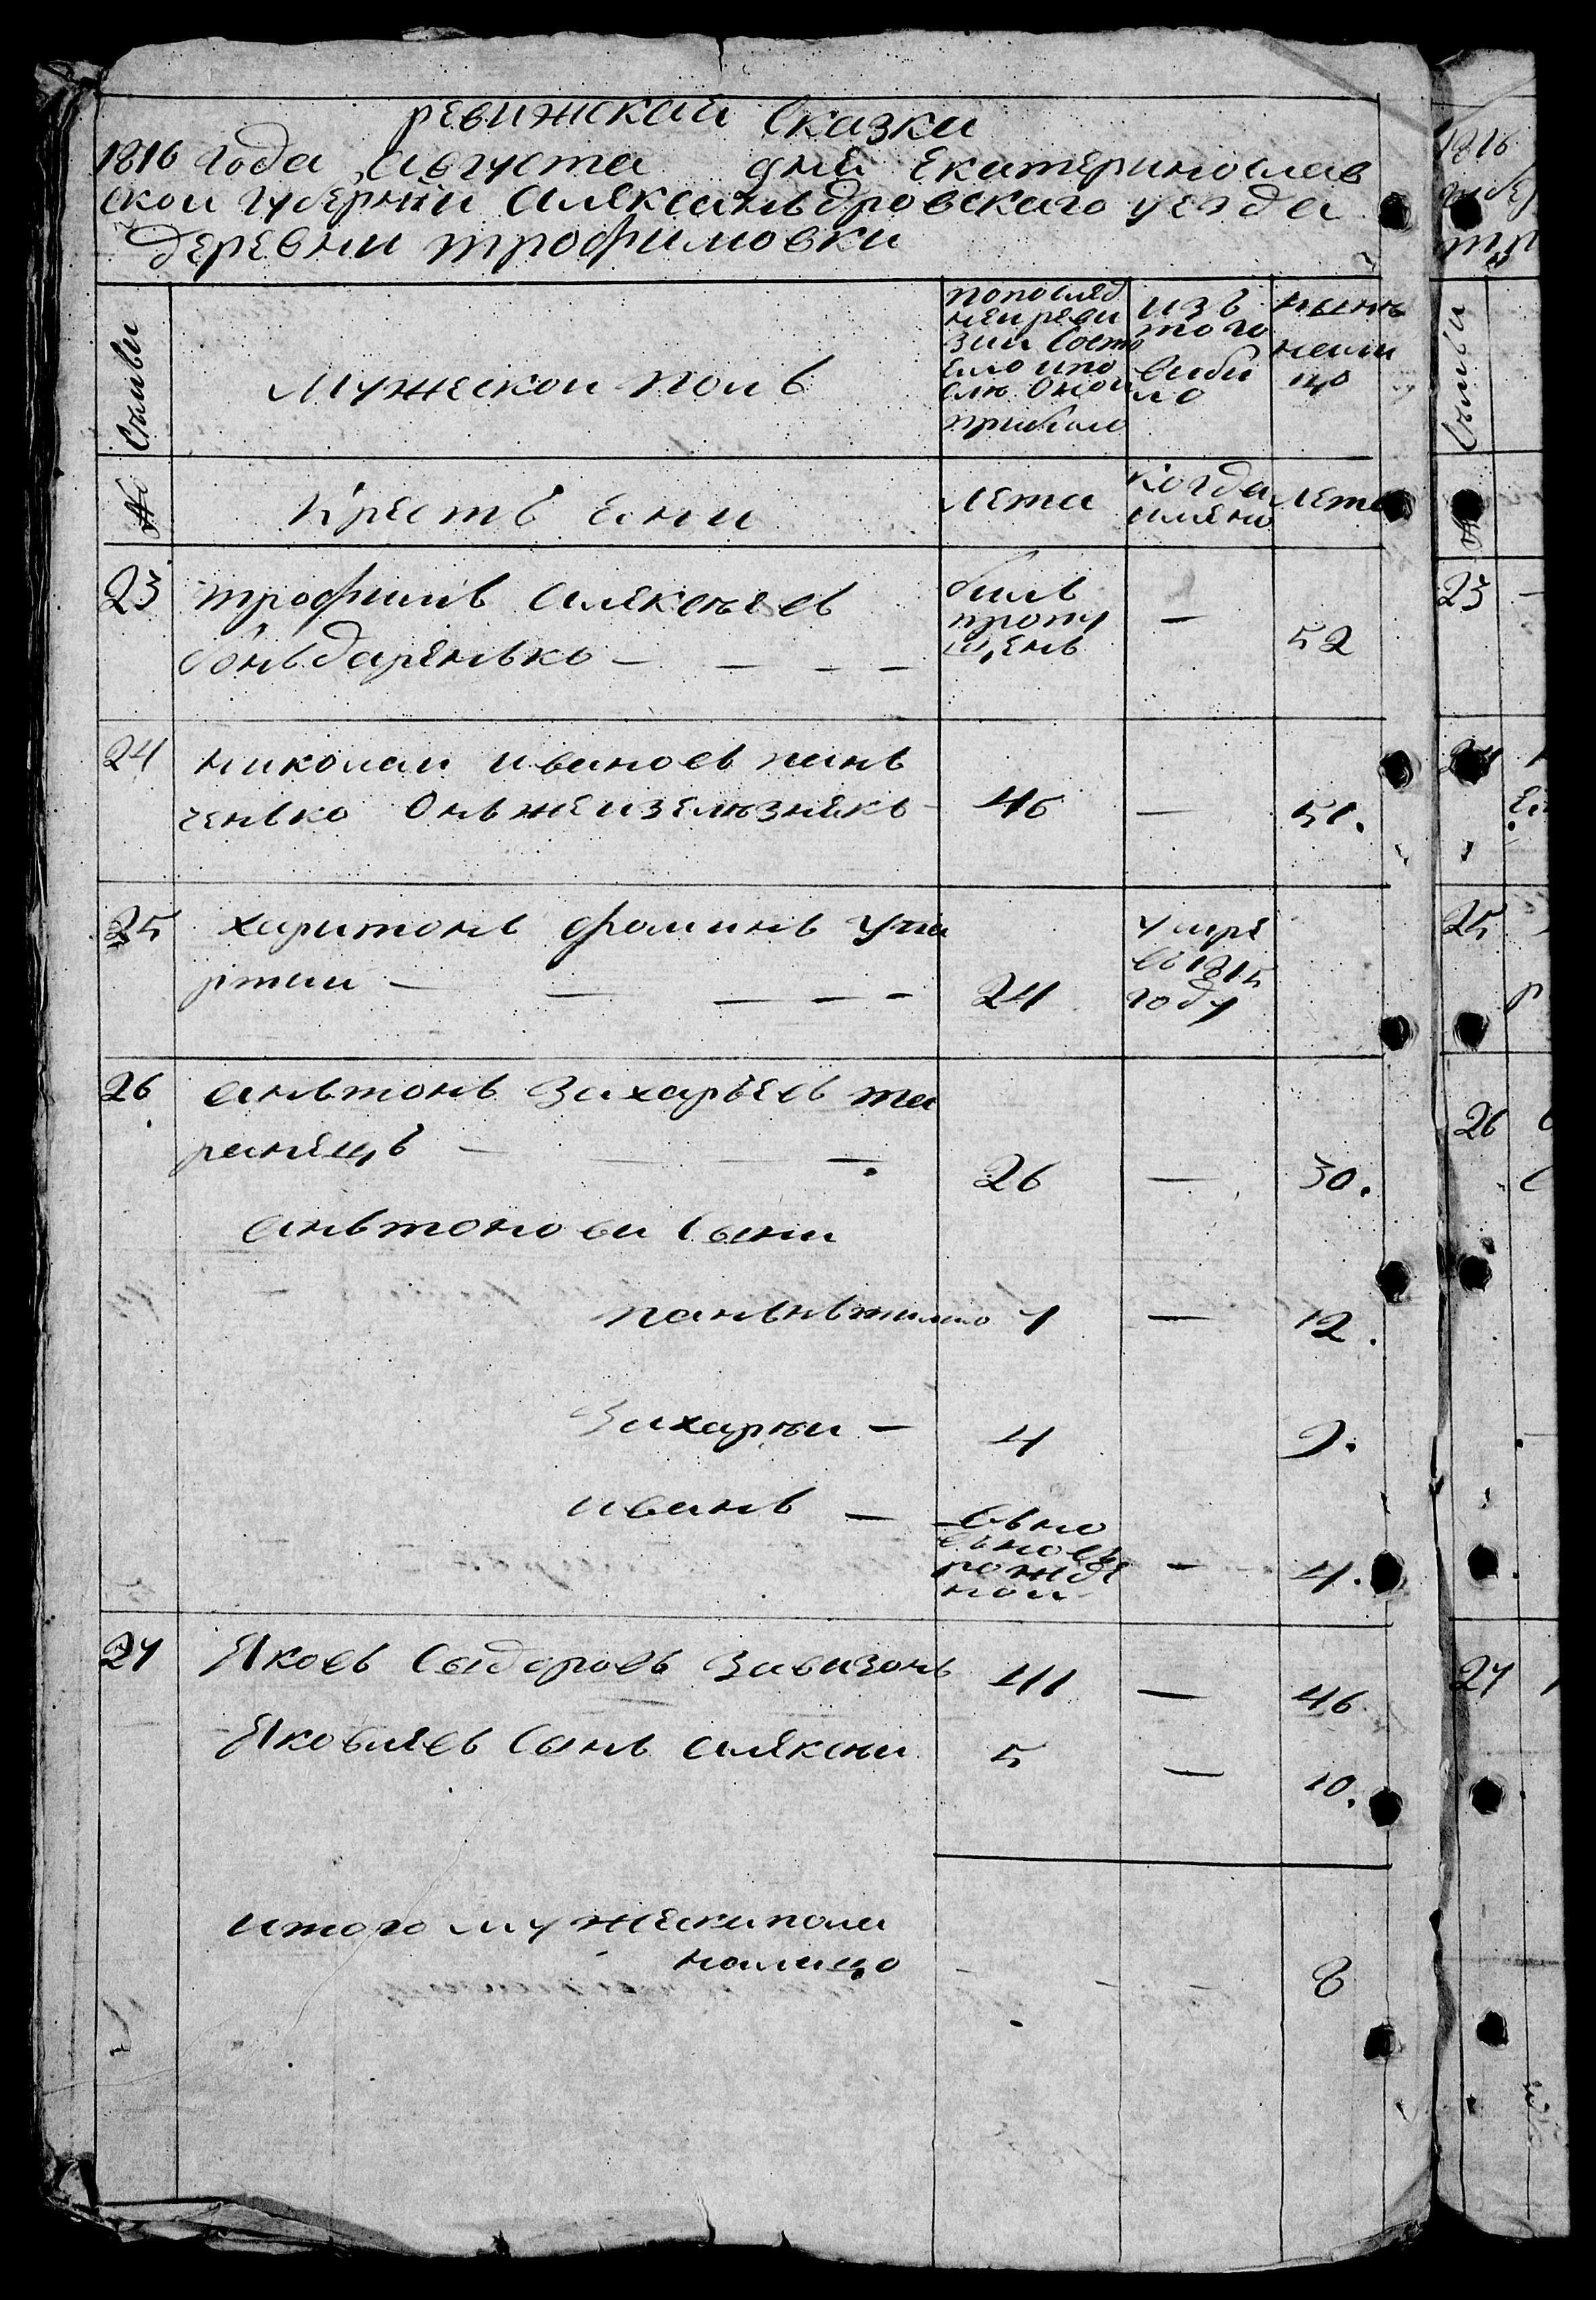 ревижская Сказка
1816 года августа дня Екатеринослав
ской губернии Аляксаньдровскаго уезда
деревни трофимовки
Сѣмьи
Мужескои полъ
попослед
неиреви
зии Состо
яло ипо
слѣ Оной
прибыло
изъ
того
выбы
ло
ныне
налицо
№
Крестъяни
Лета
Когда
имяно
Лета
23 трофимъ Аляксѣевъ
боньдаренько — — — —
былъ
пропу
щенъ
— 52
24 николаи ивановъ пань
ченько Оньжеизелѣзнякъ 46 — 51.
25 харитонъ фоминъ
24
умре
въ1815
году
26 аньтонъ Захарьевъ та
ранецъ — — — — 26 — 30.
аньтонови Сыни
7 — 12.
Захарѣи — 4 9.
иванъ —
рожде
— 4.
27 Яковъ Сыдоровъ Завизонъ 41 — 46
Яковлевъ Сынъ аляксѣи 5 — 10.
итого мужеска пола
налицо 8
1816
23
24
25
26
27